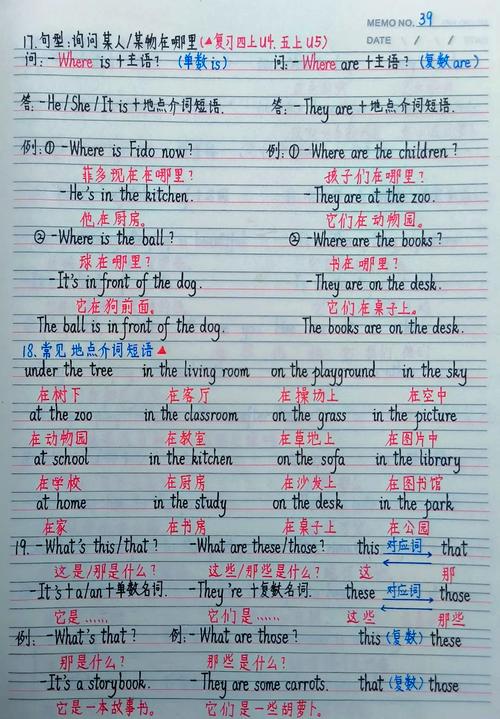 MEMO NO. 39
DATE / /
17.句型:询问某人/某物在哪里(▲复习四上U4.五上U5)
问:-Where is +主语? (单数is) 问:-Where are +主语? (复数are)
答:-He/She/It is +地点介词短语. 答:-They are +地点介词短语.
例:①-Where is Fido now? 例:①-Where are the children?
菲多现在在哪里? 孩子们在哪里?
-He's in the kitchen. -They are at the zoo.
他在厨房。 它们在动物园。
②-Where is the ball? ②-Where are the books?
球在哪里? 书在哪里?
-It's in front of the dog. -They are on the desk.
它在狗前面。 它们在桌子上。
The ball is in front of the dog. The books are on the desk.
18.常见地点介词短语▲
under the tree in the living room on the playground in the sky
在树下 在客厅 在操场上 在空中
at the zoo in the classroom on the grass in the picture
在动物园 在教室 在草地上 在图片中
at school in the kitchen on the sofa in the library
在学校 在厨房 在沙发上 在图书馆
at home in the study on the desk in the park
在家 在书房 在桌子上 在公园
19.-What's this/that? -What are these/those? this 对应词 that
这是/那是什么? 这些/那些是什么? 这 那
-It's+a/an+单数名词. -They're +复数名词. these 对应词 those
它是…… 它们是…… 这些 那些
例:-What's that? 例:-What are those? this (复数) these
那是什么? 那些是什么?
-It's a storybook. -They are some carrots. that (复数) those
它是一本故事书。 它们是一些胡萝卜。